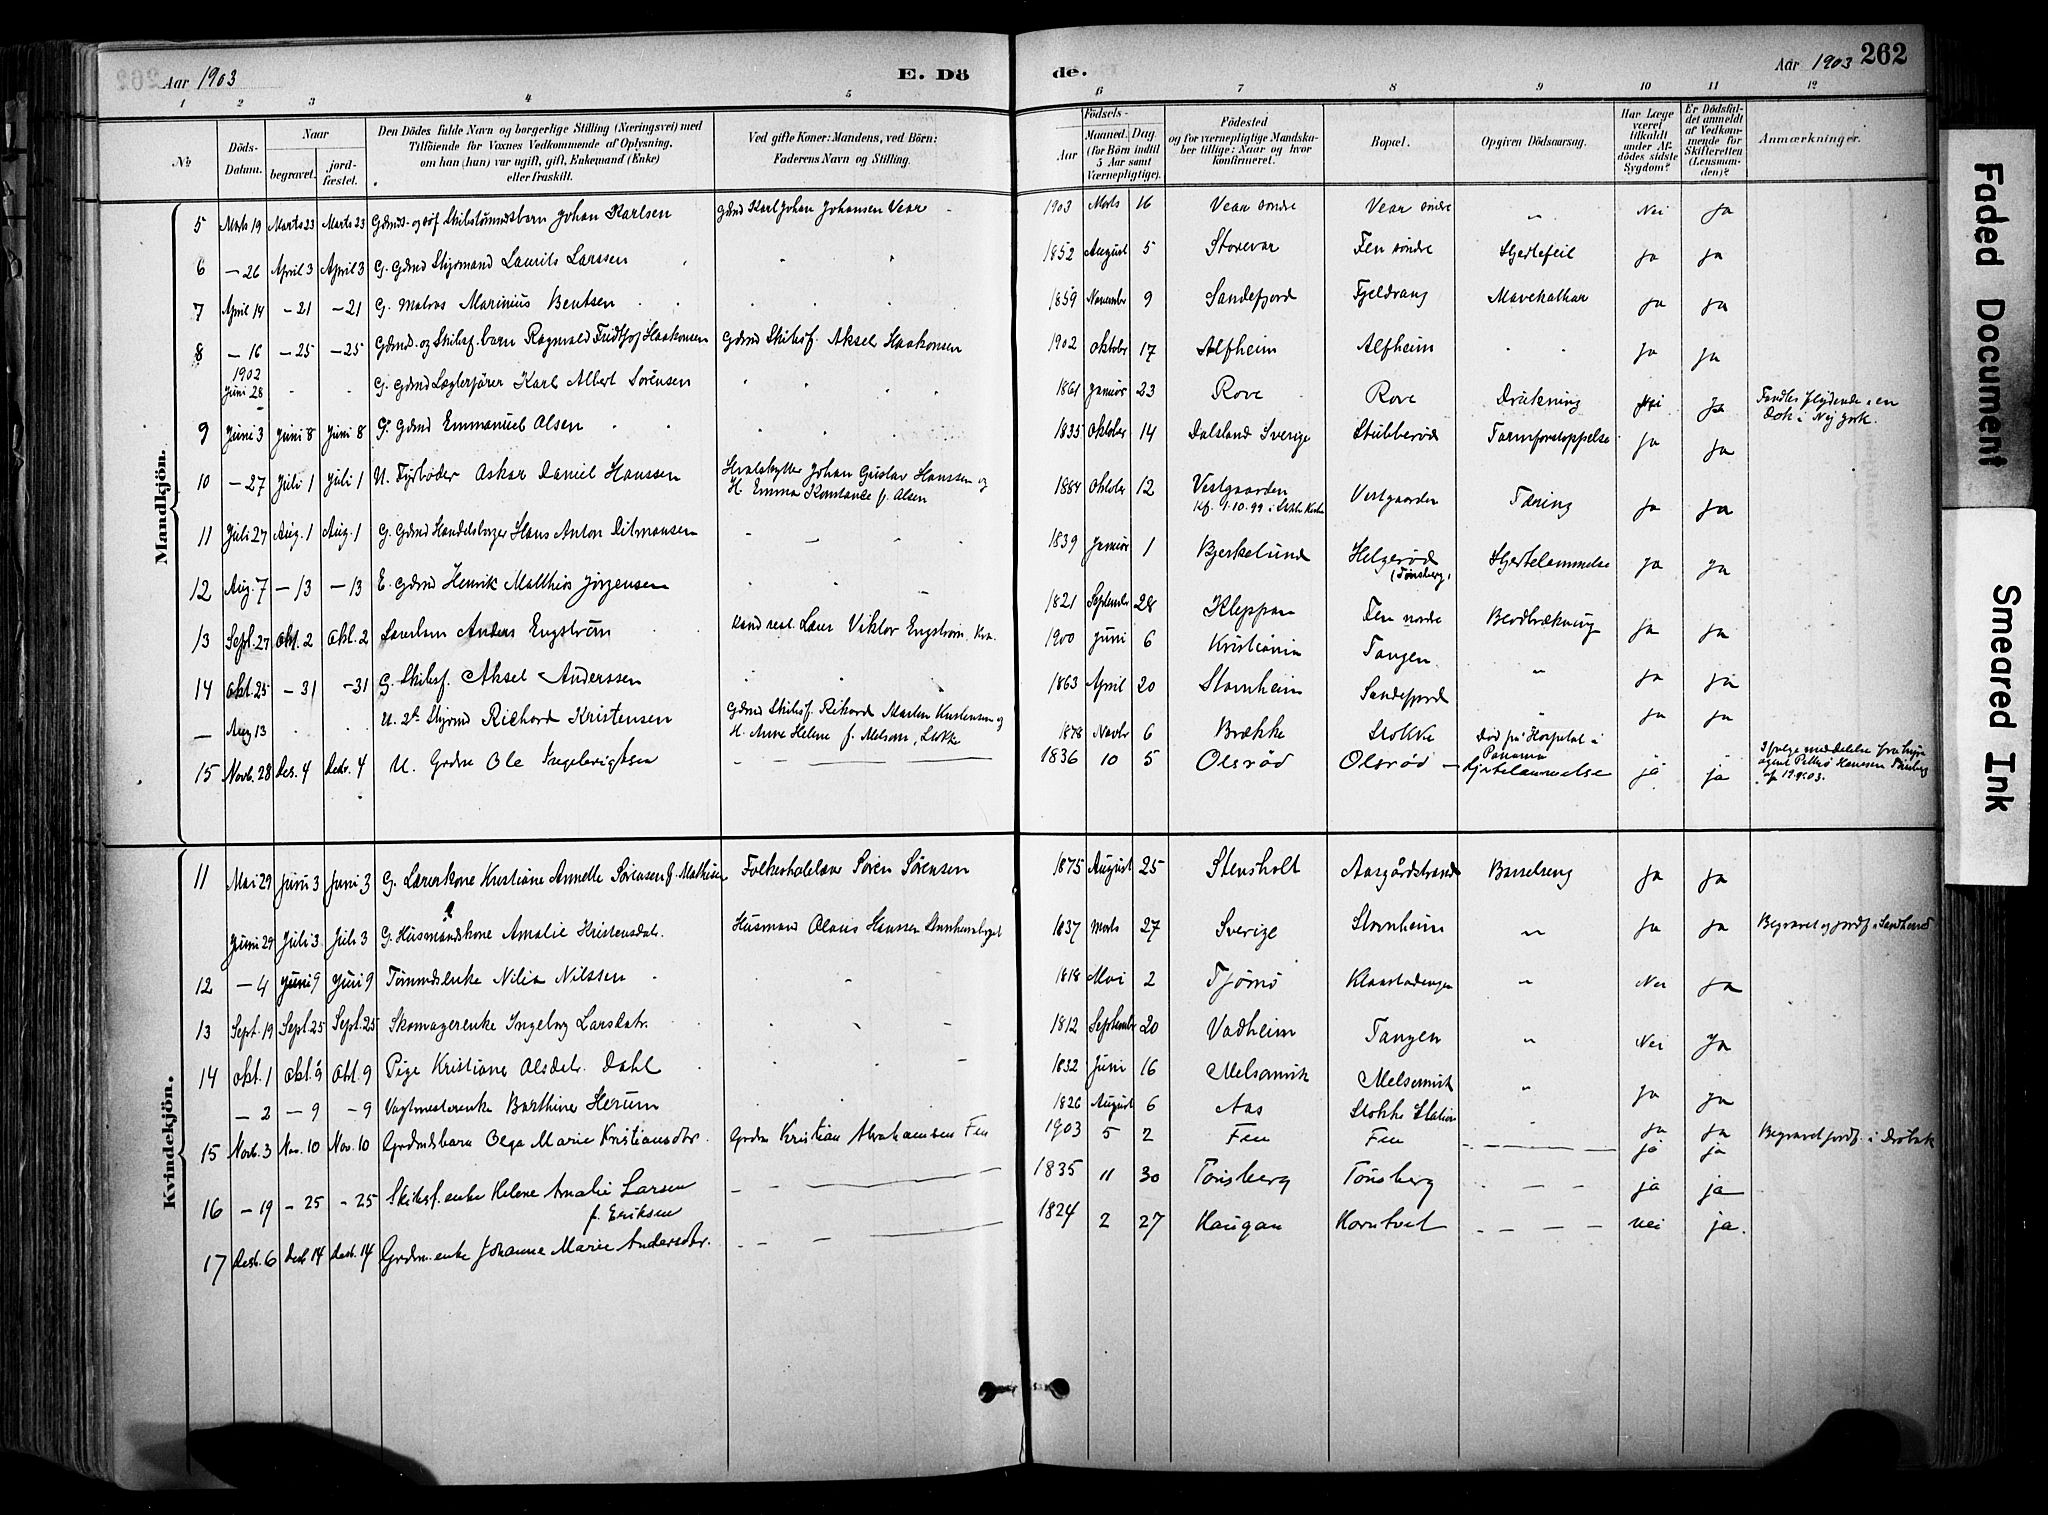 Aar 1903
E. Dö
de.
Aar 1903 262
1 2 3 4 5 6 7 8 9 10 11 12
No
Döds-Datum.
Naar
begravet.
jord-fæstet.
Den Dödes fulde Navn og borgerlige Stilling (Næringsvei) med
Tilföiende for Voxnes Vedkommende af Oplysning,
om han (hun) var ugift, gift, Enkemand (Enke)
eller fraskilt.
Ved gifte Koner: Mandens, ved Börn:
Faderens Navn og Stilling.
Födsels-
Aar
Maaned. Dag.
(for Börn indtil
5 Aar samt
Værnepligtige).
Födested
og for værnepligtige Mandska-
ber tillige: Naar og hvor
konfirmeret.
Bopæl.
Opgiven Dödsaarsag.
Har Læge
været
tilkaldt
under Af-
dödes sidste
Sygdom?
Er Dödsfal-
det anmeldt
af Vedkom-
mende for
Skifteretten
(Lensman-
den)?
Anmærkninger.
Mandkjön.
5 Marts 19 Marts 23 Marts 23 Johan Karlsen Gdmd Karl Johan Johansen Vear 1903 Marts 16 Vear søndre Vear søndre " Nei Ja
6 — 26 April 3 April 3 G. Gdmd Styrmand Laurits Larssen 1852 August 5 Storevar Fen søndre Hjertefeil Ja Ja
7 April 14 — 21 — 21 G. Matros Marinius Bentsen 1859 November 9 Sandefjord Fjeldvang Mavekathar Ja Ja
8 — 16 — 25 — 25 Gdmd. og Skibsf. barn Ragnvald Fridthjof Haakonsen Gdmd Skibsf. Aksel Haakonsen 1902 Oktober 17 Alfheim Alfheim Ja Ja
1902 Juni 28 G. Gdmd Lægterfører Karl Albert Sørensen 1861 Januar 23 Rove Rove Drukning Nei Ja Fandtes flydende i en
Dok i Nej York.
9 Juni 3 Juni 8 Juni 8 G. Gdmd Emmanuel Olsen 1835 Oktober 14 Dalsland Sverige Stubberød Tarmforstoppelse Ja Ja
10 — 27 Juli 1 Juli 1 U. Fyrbøder Oskar Daniel Hanssen Hvalskytter Johan Gustav Hanssen og
H. Emma Konstance f. Olsen 1884 Oktober 12 Vestgaarden
Kf. 1.10.99 i Stokke Kirke Vestgaarden Tæring Ja Ja
11 Juli 27 Aug. 1 Aug. 1 G. Gdmd Handelsborger Hans Anton Ditmansen 1839 Januar 1 Bjerkelund Helgerød
(Tønsberg) Hjertelammelse Ja Ja
12 Aug. 7 — 13 — 13 E. Gdmd Henrik Matthias Jørgensen 1821 September 28 Kleppan Fen nordre Ja Ja
13 Sept. 27 Okt. 2 Okt. 2 Anders Engstrøm Kand real. Lærer Viktor Engstrøm, Kra. 1900 Juni 6 Kristiania Tangen " Ja Ja
14 Okt. 25 — 31 — 31 G. Skibsf. Aksel Anderssen 1863 April 20 Stornheim Sandefjord " Ja Ja
— Aug 13 U. 2den Styrmd Richard Kristensen Gdmd Skibsf. Rikard Martin Kristensen og
H. Anne Helene f. Nelson, Stokke 1878 Novbr 6 Brække Stokke Død på Hospital i
Panama
15 Novb. 28 Des. 4 Desb. 4 U. Grdm Ole Ingebrigtsen 1836 10 5 Olsrød Olsrød — Hjertelammelse ja ja
Kvindekjön.
11 Mai 29 Juni 3 Juni 3 G. Lærerkone Kristiane Annette Sørensen f. Mathisen Folkeskolelærer Søren Sørensen 1875 August 25 Stensholt Aasgårdstrand Barselseng Ja Ja
Juni 29 Juli 3 Juli 3 G. Husmandskone Amalie Kristensdtr. Husmand Olaus Hanssen 1837 Marts 27 Sverige Stornheim " Ja Ja Begravet og jordf. i Sandherred
12 — 4 Juni 9 Juni 9 Tømmdsenke Nilia Nilssen 1818 Mai 2 Tjømø " Nei Ja
13 Sept. 19 Sept. 25 Sept. 25 Skomagerenke Ingeborg Larsdatr. 1812 September 20 Vadheim Tangen " Nei Ja
14 Okt. 1 Okt. 9 Okt. 9 Pige Kristiane Olsdatr. Dahl 1832 Juni 16 Melsomvik Melsomvik " Ja Ja
— 2 — 9 — 9 Vagtmesterenke Barthine Herum 1826 August 6 Aas Stokke Station " Ja Ja Begravet jordf. i Drøbak
15 Novb. 3 Nov. 10 Nov. 10 Grdmdsbarn Olga Marie Kristiansdtr. Grdm Kristian Abrahamsen Fen 1903 5 2 Fen Fen — ja ja
16 — 19 — 25 — 25 Skibsf. enke Helene Amalie Larsen
f. Eriksen 1835 11 30 Tønsberg Tønsberg — ja ja
17 Desb. 6 Desb 14 Desb. 14 Grdm. enke Johanne Marie Andersdtr. 1824 2 27 Haugan Horntvet — nei ja.
Faded Document
Smeared Ink